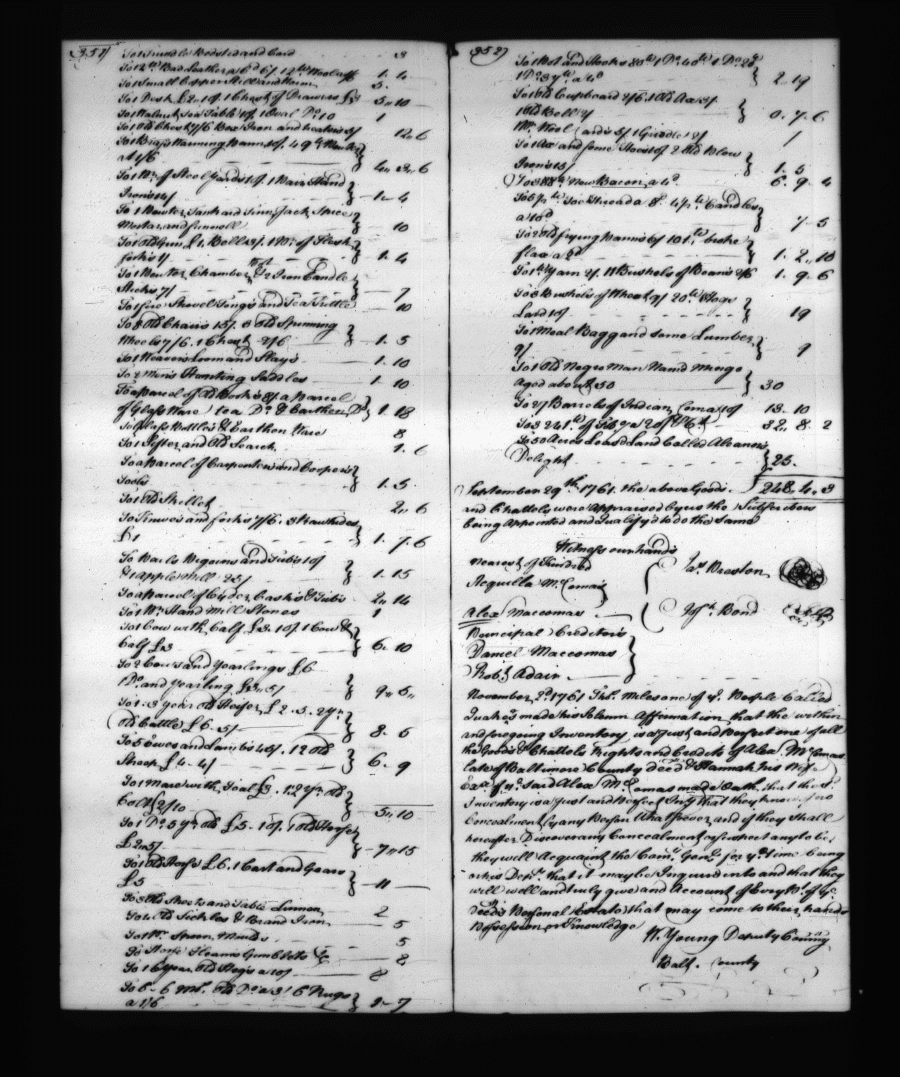 351)
To 1 Trundle Bedsted and Cord 3
To 12 lb Bad Leather a 6d 6/. 12 lb Wool a 1. 4
To 1 Small Copper Still and 5.
To 1 Desk £2.10/. 1 Chest of Drawers £3 5 10
To 1 Walnut Tea Table 1 Oval Do. 10 1
To 1 Old Chest 7/6 Box Iron and heaters 5/ 12. 6
To 1 Brass Warming Pann of. 49 lb Pewter
a 1/6 } 4. 3. 6
To 1 Pr. of Steel Yards 1 Pair Hand
Irons 14/ } 1. 4
To 1 Pewter Tankard Tinn Jack Spice
Morter and funnell } 10
To 1 Old Gun £1. Bells 3/. 1 Pr. of Flesh
forks 1/ } 1. 4
To 1 Pewter Chamber Pot & 2 Iron Candle
Sticks 7/ } 7
To 1 fire Shovel Tongs and Tea Kettle 10
To 8 Old Chairs 15/. 3 Old Spinning
Wheels 7/6. 1 Chest 2/6 } 1. 5
To 1 Weavers Loom and Slays 1. 10
To 2 Mens Hunting Saddles 1. 10
To a Parcel of Old Books 8/. a Parcel
of Glass Ware tea Do. & Earthen Do } 1. 18
To Glass Bottles & Earthen Ware 8
To 1 Sifter and Old Search 1. 6
To a Parcel of Carpenters and Coopers
Tools } 1. 5.
To 1 Old Skellet 2. 6
To Knives and forks 7/6. 3 Rawhides
£1 } 1. 7. 6
To Pails Piggins and Tubbs 10/
& 1 Apple Mill 25/ } 1. 15
To a Parcel of Cyder Casks & Tubs 2. 14
To 1 Pr. Hand Mill Stones 1
To 1 Cow with Calf £3. 10/. 1 Cow &
Calf £3 } 6. 10
To 2 Cows and Yearlings £6
1 Do. and Yearling £3.5/ } 9. 5.
To 1. 3 year old Heifer £2.5. 2 Yr.
Old Cattle £6.5/ } 8. 5
To 5 Ewes and Lambs 45/. 12 Old
Sheep £4.4/ } 6. 9
To 1 Mare with Foal £3. 1. 2 Yr. Old
Colt £2/10 5. 10
To 1 Do. 5 yr. Old £5.10/. 1 Old Horse
£2.5/ } 7. 15
To 1 Old Horse £6. 1 Cart and Gears
£5 } 11
To 3 Old Sheets and Table Linnen 2
To 4 Old Sickles & Brand Iron 5
To 1 Pr. Spoon Molds 5
To Horse Fleams Gimblets &c 8
To 16 Year Old Hogs a 10/ 8
To 6. 6 Mo. Old Do. a 3/ 6 Piggs
a 1/6 } 1. 7
352)
To 1 Pot and Hooks 80 lb 1 Do. 40 lb 1 Do. 20 lb
1 Do. 37 lb a 4d } 2. 19
To 1 Old Cupboard 2/6. 1 Old Ax 3/
1 Old Bell 2/ } 0. 7. 6
Pr. Wool Cards 3/ 1 Griddle 2/ /
To 1 Ax and some Hoes 10/ 2 Old Plow
Irons 15/ } 1. 5
To 388 lb New Bacon a 4d 6. 9. 4
To 6 1/2 lb Shoe Thread a 8. 4 1/2 lb Candles
a 10d } 7. 5
To 2 Old frying Panns 6/ 101 lb broke
flax a 2d } 1. 2. 10
To 1 lb Yarn 2/. 11 Bushels of Beans 2/6 1. 9. 6
To 3 Bushels of Wheat 9/ 20 lb Hogs
Lard 10/ } 19
To 1 Meal Bagg and some Lumber
9/ } 9
To 1 Old Negro Man Named Mingo
Aged about 50 } 30
To 27 Barrels of Indian Corn a 10/ 13. 10
To 3241 lb of Tobo a 20/ P Ct. 32. 8. 2
To 50 Acres Leas'd Land Called
Delight } 25.
£ 248. 4. 3
September 29th 1761 the above Goods
and Chattels were Appraised by us the Subscribers
being Appointed and Qualify'd to do the Same
Witness our hands
Nearest of Kindred
Acquilla McComas
Alexr Maccomas
} Jas. Preston
Principal Creditors
Daniel Maccomas
Robt. Adair
} Jos. Bond
November 2d 1761 Thos. Miles one of ye. People Called
Quakers made his Solemn Affirmation that the within
and foregoing Inventory is a Just and Perfect one of all
the Goods & Chattels Rights and Credits of Alexr. McComas
late of Baltimore County decd & Hannah his Wife
Exx. of ye. Said Alexr McComas made Oath that the sd.
Inventory is a Just and Perfect Inty that they know of no
Concealment by any Person Whatsoever and if they Shall
hereafter Discover any Concealment or Suspect any to be
they will Acquaint the Comy. Genl. for ye. time being
or his Depy. that it may be Inquired into and that they
will well and truly give and Account of Every Pt. of ye.
Decd's Personal Estate that may come to their hands
Possession or Knowledge
W. Young Deputy Comry
Balt. County